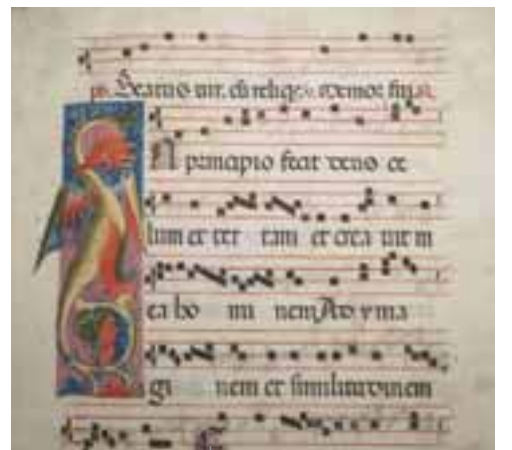 ps. Beatus uir. cū reliqs. ? de mot fiu
In principio fecit deus ce
lum et ter ram et crea uit in
ea ho mi nem Ad yma
gi nem et similitudinem